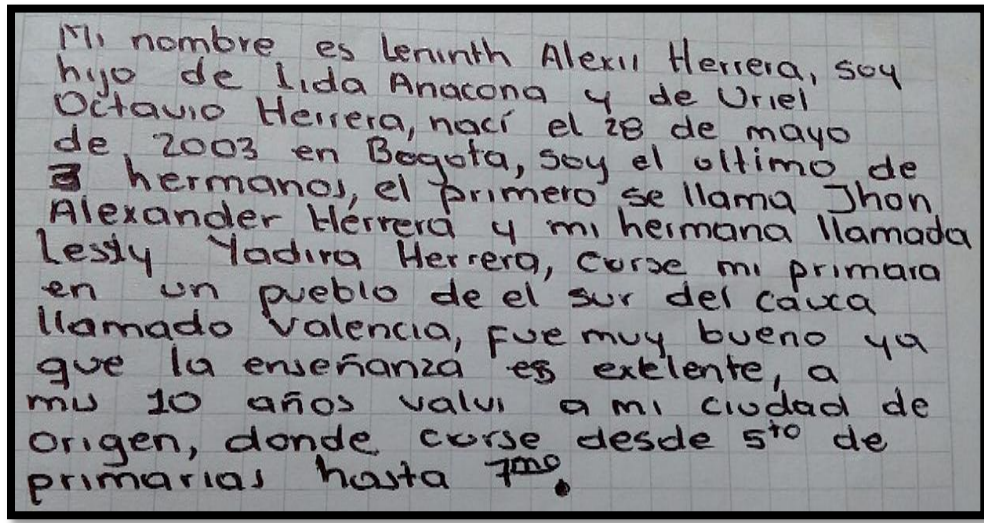 Mi nombre es Leninth Alexii Herrera, soy
hijo de Lida Anacona y de Uriel
Octavio Herrera, nací el 28 de mayo
de 2003 en Bogota, soy el ultimo de
3 hermanos, el primero se llama Jhon
Alexander Herrera y mi hermana llamada
Lessly Yadira Herrera, curse mi primara
en un pueblo de el sur del cauca
llamado Valencia, fue muy bueno ya
que la enseñanza es exelente, a
mis 10 años valvi a mi ciudad de
origen, donde curse desde 5to de
primarias hasta 7mo.